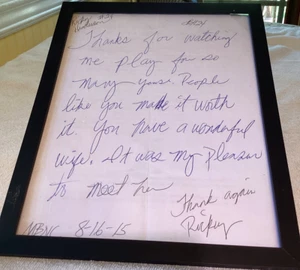 Thanks for watching
me play for so
many years. People
like you made it worth
it. You have a wonderful
wife. It was my pleasure
to meet her
Thank again
Rickey
8-16-15